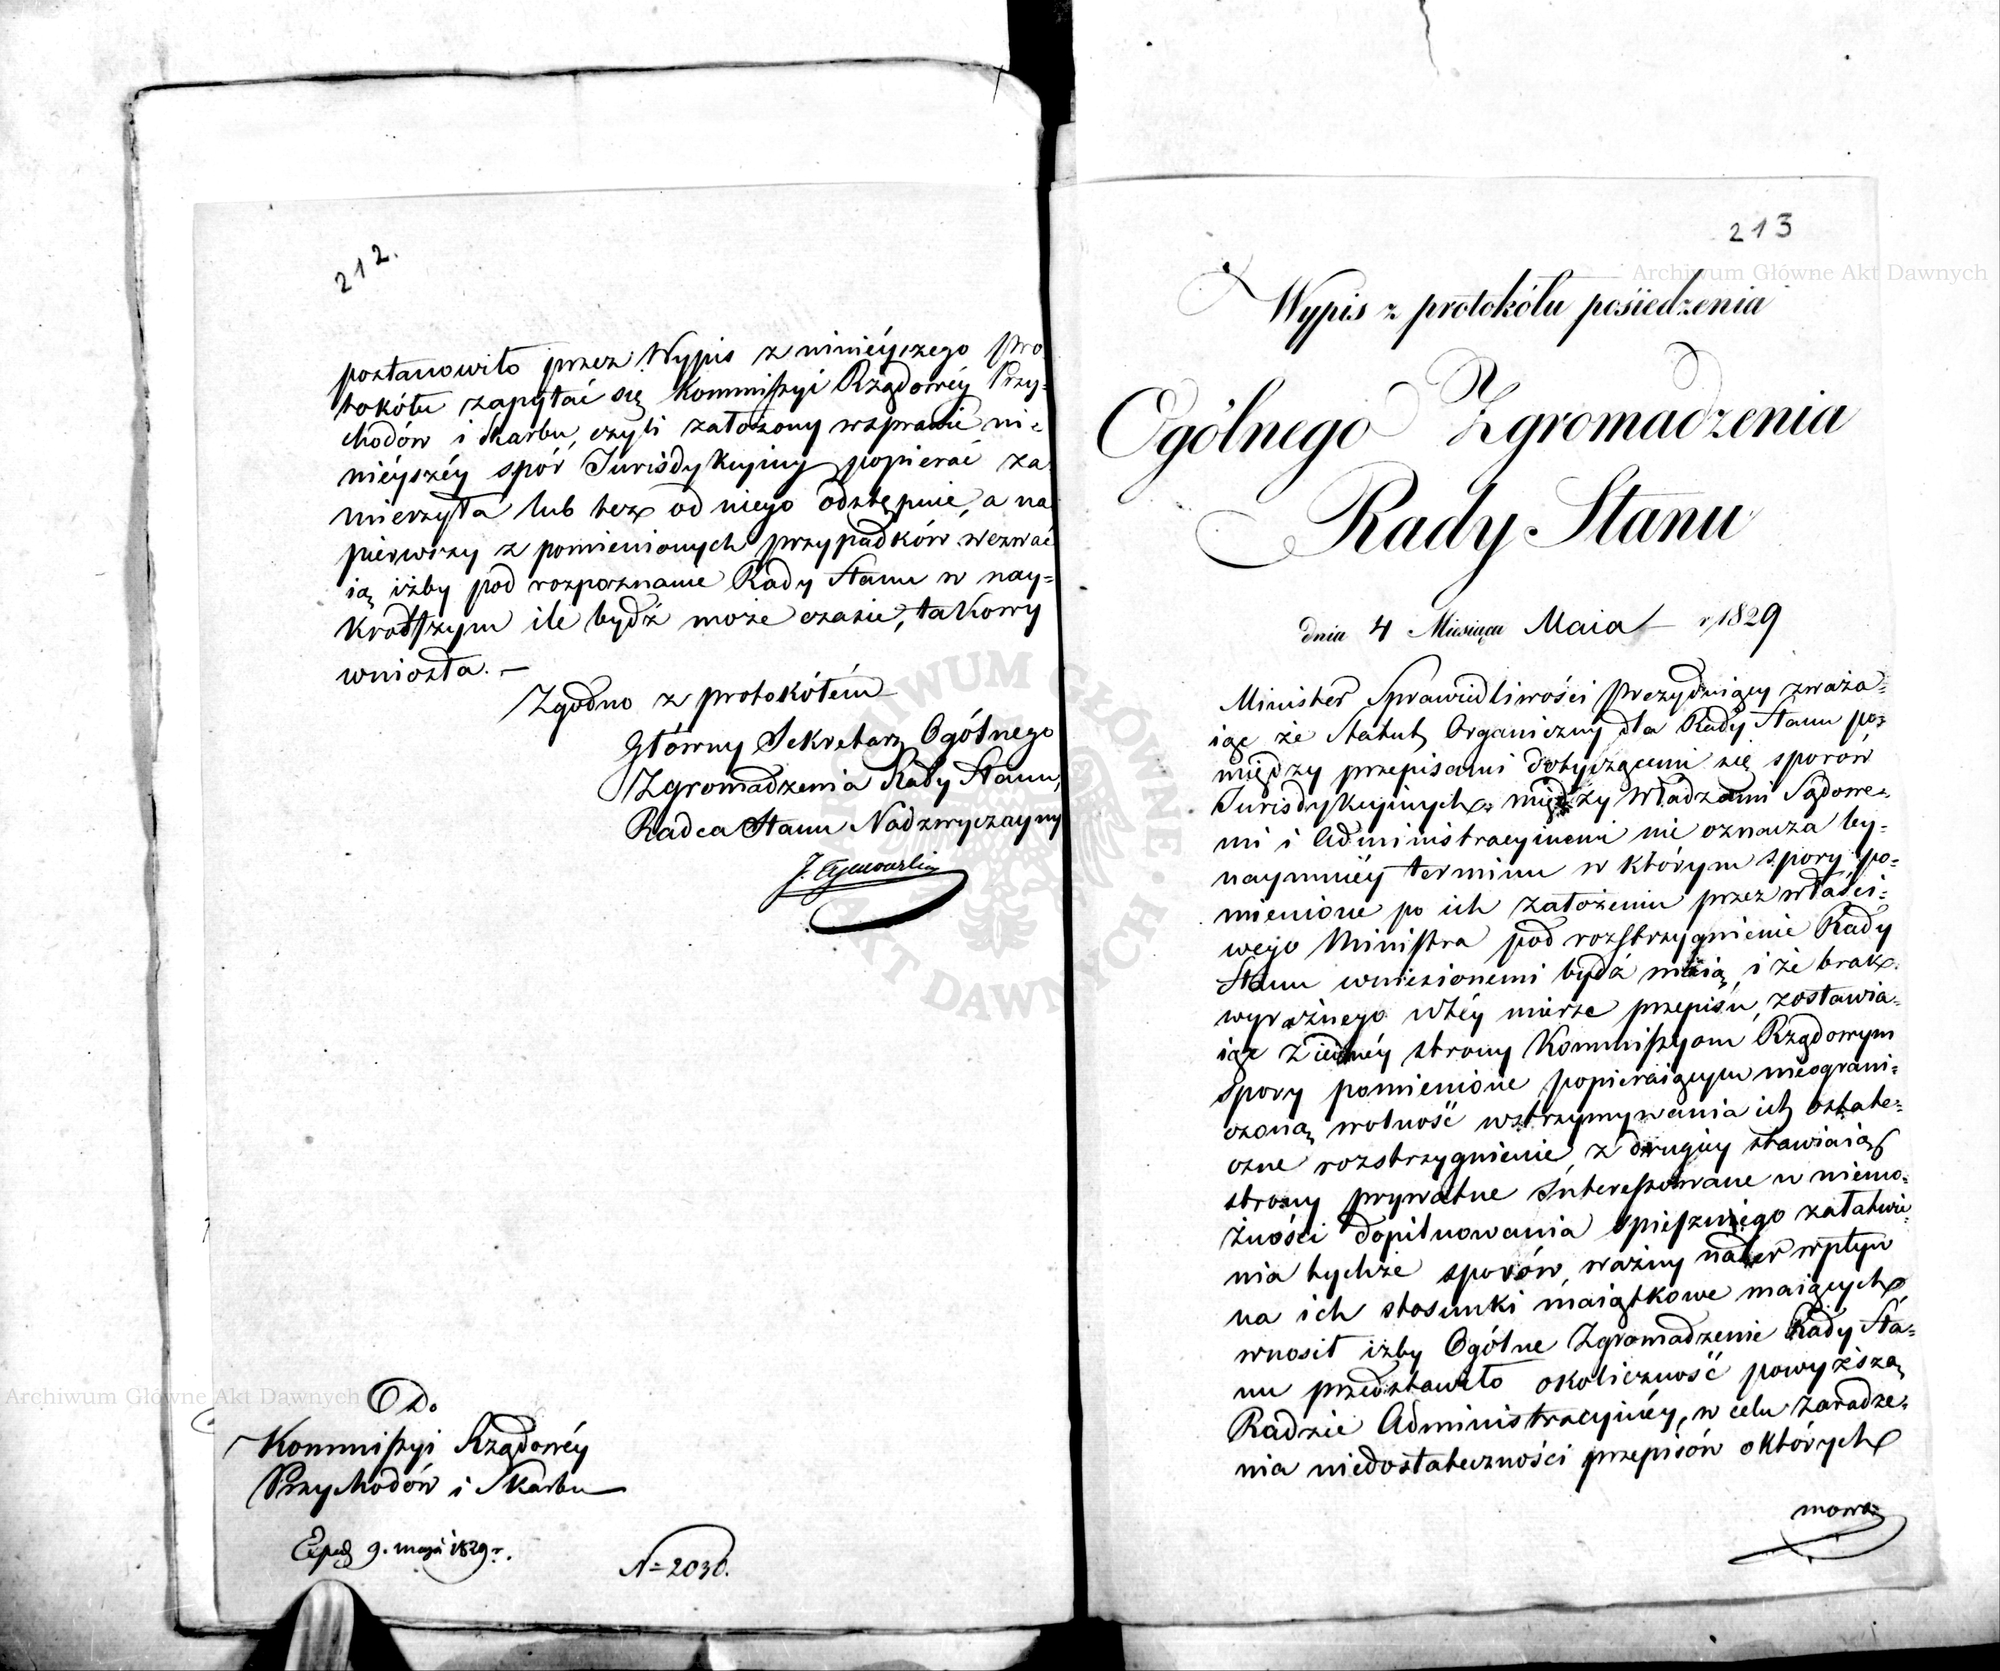 212.
postanowiło przez Wypis z ninieyszego pro
tokółu zapytać się Kommissyi Rządowéy Przy-
chodów i Skarbu, czyli założony wsprawie ni-
nieyszéy spór Jurisdykcyiny popierać za
mierzyła lub też od niego odstępuie, a na
pierwszy z pomienionych przypadków wezwać
ią iżby pod rozpoznanie Rady Stanu w nay-
krótszym ile bydź może czasie, takowy
wniosła. —
Zgodno z protokółem
Główny Sekretarz Ogólnego
Zgromadzenia Rady Stanu,
Radca Stanu Nadzwyczayny
Do
Kommissyi Rządowéy
Przychodów i Skarbu
Exped 9. maja 1829 r.
N= 2030.
213
Wypis z protokółu posiedzenia
Ogólnego Zgromadzenia
Rady Stanu
dnia 4 Miesiąca Maia r. 1829
Minister Sprawiedliwości Prezyduiący zwaza-
iąc że Statut Organiczny dla Rady Stanu po-
między przepisami dotyczącemi się sporów
Jurisdykcyinych, między Władzami Sądowe-
mi i Administracyinemi nie oznacza by-
naymniéy terminu w którym spory po-
mienione po ich założeniu przez właści-
wego Ministra pod rozstrzygnienie Rady
Stanu wniesionemi bydź maią, i że brak
wyraźnego wtéy mierze przepisu, zostawia-
iąc z iednéy strony Kommissyom Rządowym
spory pomienione popieraiącym nieograni-
czoną wolność wstrzymywania ich ostate-
czne rozstrzygnienie, z drugiey stawiaiąc
strony prywatne Interessowane w niemo-
żności dopilnowania spiesznego załatwie-
nia tychże sporów, ważny nader wpływ
na ich stosunki maiątkowe maiących,
wnosił iżby Ogólne Zgromadzenie Rady Sta-
nu przedstawiło okoliczność powyższą
Radzie Administracyinéy, w celu zaradze-
nia niedostateczności przepisów o których
mowa
Archiwum Główne Akt Dawnych
Archiwum Główne Akt Dawnych
ARCHIWUM GŁÓWNE
AKT DAWNYCH